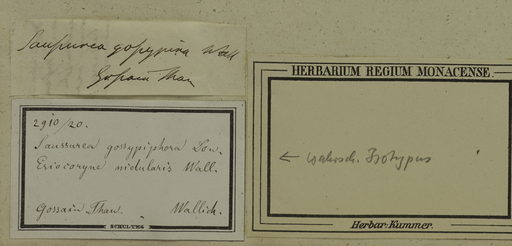 Saussurea gossypina Wall
Gosain Than
2910/20.
Saussurea gossypiphora Don.
Eriocoryne nidularis Wall.
Gossain Than. Wallich.
SCHULTES
HERBARIUM REGIUM MONACENSE.
← wahrsch. Isotypus
Herbar. Kummer.